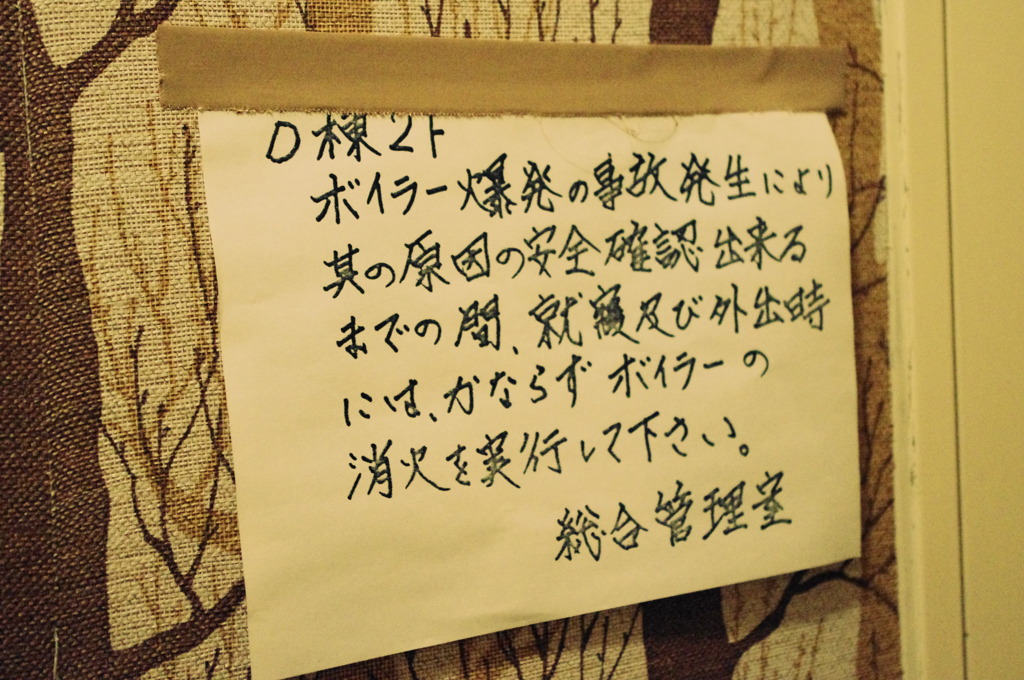 D棟2F
ボイラー爆発の事故発生により
其の原因の安全確認出来る
までの間、就寝及び外出時
には、かならずボイラーの
消火を実行して下さい。
総合管理室